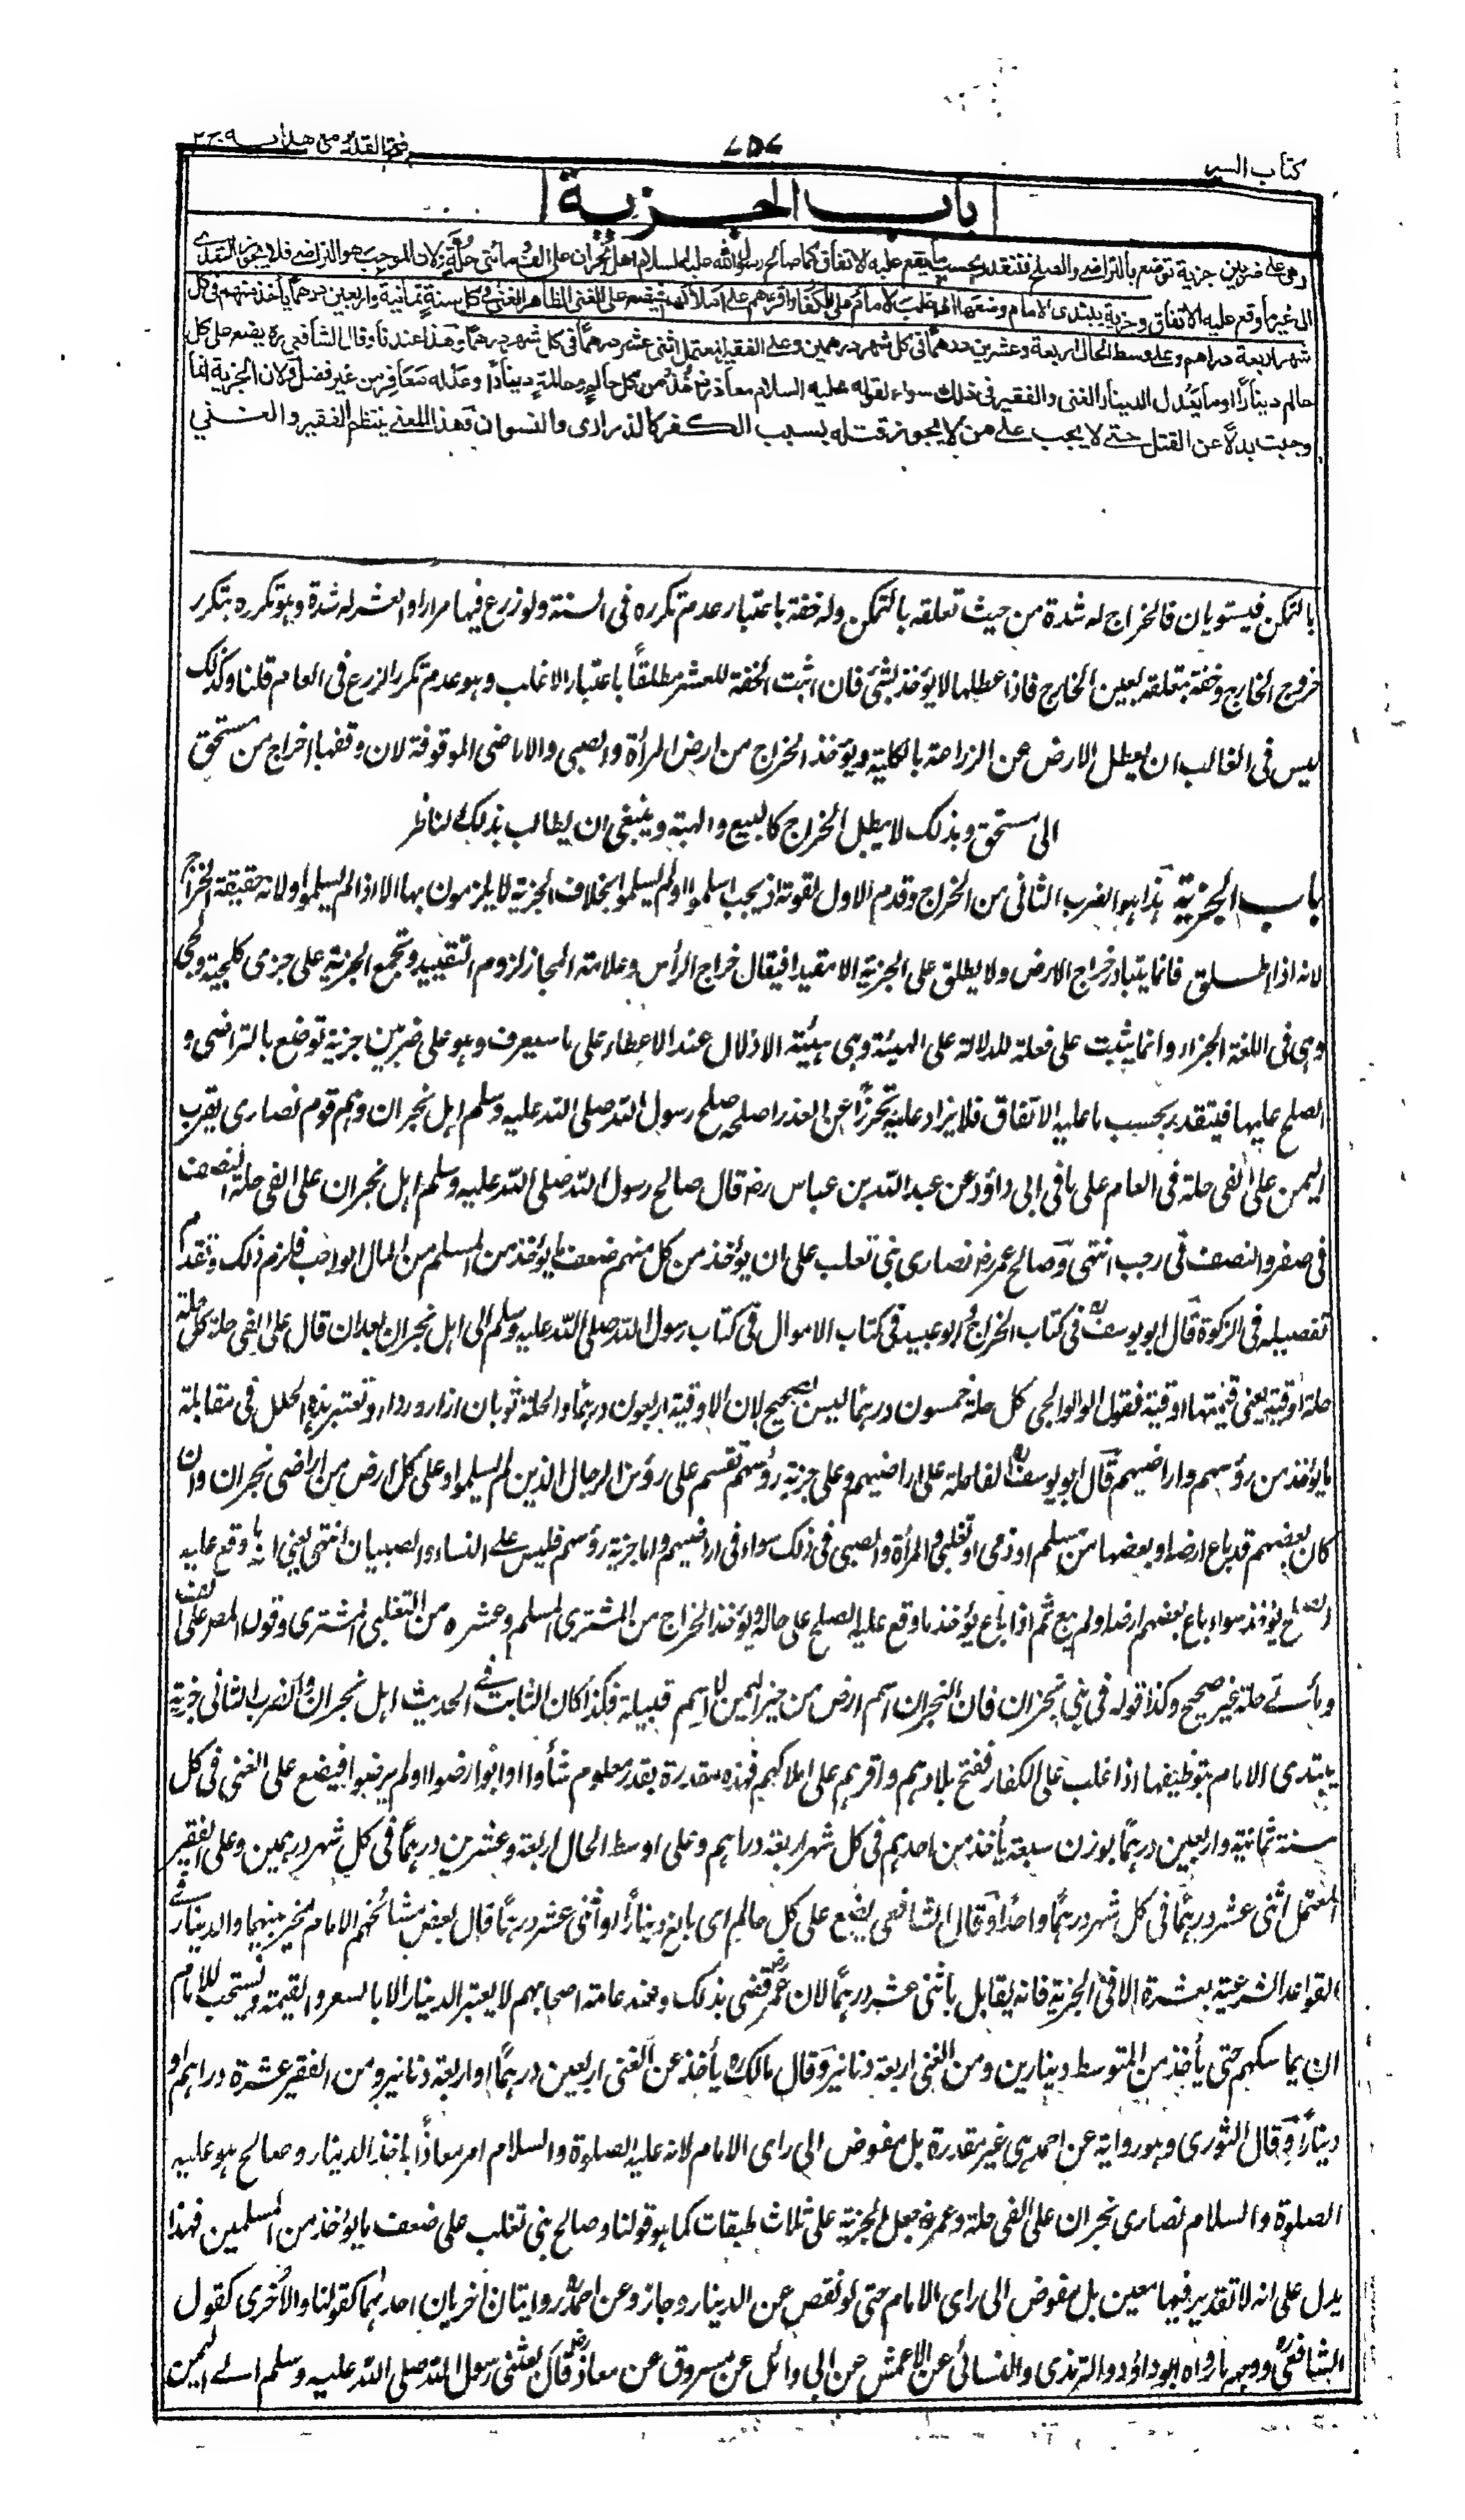 كتاب السير
٧٥٧
فتح القدير مع هدايه ج٢
باب الجزية
وهي على ضربين جزية توضع بالتراضي والصلح فتتقدر بحسب ما يقع عليه الاتفاق كما صالح رسول الله عليه السلام اهل نجران على الف ومائتي حلة ولان الموجب هو التراضي فلا يجوز التعدي
الى غير ما وقع عليه الاتفاق وجزية يبتدئ الامام وضعها اذا غلب الامام على الكفار واقرهم على املاكهم فيضع على الغني الظاهر الغنى في كل سنة ثمانية واربعين درهما يأخذ منهم في كل
شهر اربعة دراهم وعلى وسط الحال اربعة وعشرين درهما في كل شهر درهمين وعلى الفقير المعتمل اثني عشر درهما في كل شهر درهما وهذا عندنا وقال الشافعي ره يضع على كل
حالم دينارا او ما يعدل الدينار الغني والفقير في ذلك سواء لقوله عليه السلام لمعاذ رض خذ من كل حالم وحالمة دينارا او عدله معافر من غير فصل ولان الجزية انما
وجبت بدلا عن القتل حتى لا يجب على من لا يجوز قتله بسبب الكفر كالذراري والنسوان وهذا المعنى ينتظم الفقير والغني
بالتمكن فيستويان فالخراج له شدة من حيث تعلقه بالتمكن وله خفة باعتبار عدم تكرره في السنة ولو زرع فيها مرارا والعشر له شدة وهو تكرره بتكرر
خروج الخارج وخفة بتعلقه بعين الخارج فاذا عطلها لا يؤخذ بشئ فان اثبت الخفة للعشر مطلقًا باعتبار الاغلب وهو عدم تكرر الزرع في العام قلنا وكذلك
ليس في الغالب ان يعطل الارض عن الزراعة بالكلية ويؤخذ الخراج من ارض المرأة والصبي والاراضي الموقوفة لان وقفها اخراج من مستحق
الى مستحق وبذلك لا يبطل الخراج كالبيع والهبة وينبغي ان يطالب بذلك الناظر
باب الجزية هذا هو الضرب الثاني من الخراج وقدم الاول لقوته اذ يجب اسلموا او لم يسلموا بخلاف الجزية لا يلزمون بها الا اذا لم يسلموا ولانه حقيقة الخراج
لانه اذا اطلق فانما يتبادر خراج الارض ولا يطلق على الجزية الا مقيدا فيقال خراج الرأس وعلامة المجاز لزوم التقييد وتجمع الجزية على جزى كلحية ولحى
وهي في اللغة الجزاء وانما بنيت على فعلة للدلالة على الهيئة وهي هيئة الاذلال عند الاعطاء على ما سيعرف وهو على ضربين جزية توضع بالتراضي و
الصلح عليها فيتقدر بحسب ما عليه الاتفاق فلا يزاد عليه تحرزًا عن الغدر اصله صلح رسول الله صلى الله عليه وسلم اهل نجران وهم قوم نصارى بقرب
اليمن على الفي حلة في العام على ما في ابي داؤد عن عبد الله بن عباس رض قال صالح رسول الله صلى الله عليه وسلم اهل نجران على الفي حلة النصف
في صفر والنصف في رجب انتهى وصالح عمر رض نصارى بني تغلب على ان يؤخذ من كل منهم ضعف ما يؤخذ من المسلم من المال الواجب فلزم ذلك وتقدم
تفصيله في الزكوة قال ابو يوسف ره في كتاب الخراج وابو عبيد في كتاب الاموال في كتاب رسول الله صلى الله عليه وسلم الى اهل نجران بعد ان قال على الفي حلة كل حلة
حلة اوقية يعني قيمتها اوقية فقول الولوالجي كل حلة خمسون درهما ليس بصحيح لان الاوقية اربعون درهما والحلة ثوبان ازار ورداء وتعتبر هذه الحلل في مقابلة
ما يؤخذ من رؤسهم واراضيهم قال ابو يوسف ره الفا حلة على اراضيهم وعلى جزية رؤسهم تقسم على رؤس الرجال الذين لم يسلموا وعلى كل ارض من اراضي نجران وان
كان بعضهم قد باع ارضه او بعضها من مسلم او ذمي او تغلبي والمرأة والصبي في ذلك سواء في اراضيهم واما جزية رؤسهم فليس على النساء والصبيان انتهى يعني ان ما وقع عليه
الصلح يؤخذ سواء باع بعضهم ارضه او لم يبع ثم اذا باع يؤخذ ما وقع عليه الصلح على حاله ويؤخذ الخراج من المشتري المسلم وعشره من التغلبي المشتري وقول المصر على الف
ومائتي حلة غير صحيح وكذا قوله في بني نجران فان النجران اسم ارض من حيز اليمن لا اسم قبيلة فكذا كان الثابت في الحديث اهل نجران والضرب الثاني جزية
يبتدئ الامام بتوظيفها اذا غلب على الكفار ففتح بلادهم واقرهم على املاكهم فهذه مقدرة بقدر معلوم شاؤا او ابوا رضوا او لم يرضوا فيضع على الغني في كل
سنة ثمانية واربعين درهما بوزن سبعة يأخذ من احدهم في كل شهر اربعة دراهم وعلى اوسط الحال اربعة وعشرين درهما في كل شهر درهمين وعلى الفقير
المعتمل اثني عشر درهما في كل شهر درهما واحدا وقال الشافعي يضع على كل حالم اي بالغ دينارا او اثني عشر درهما قال بعض مشائخهم الامام مخير بينهما والدينار في
القواعد الشرعية بعشرة الا في الجزية فانه يقابل باثني عشر درهما لان عمر رض قضى بذلك وعند عامة اصحابهم لا يعتبر الدينار الا بالسعر والقيمة ويستحب للامام
ان يماسكهم حتى يأخذ من المتوسط دينارين ومن الغني اربعة دنانير وقال مالك ره يأخذ عن الغني اربعين درهما او اربعة دنانير ومن الفقير عشرة دراهم او
دينارا وقال الثوري وهو رواية عن احمد هي غير مقدرة بل مفوض الى راى الامام لانه عليه الصلوة والسلام امر معاذا باخذ الدينار وصالح هو عليه
الصلوة والسلام نصارى نجران على الفي حلة وعمر رض جعل الجزية على ثلاث طبقات كما هو قولنا وصالح بني تغلب على ضعف ما يؤخذ من المسلمين فهذا
يدل على انه لا تقدير فيها معين بل مفوض الى راى الامام حتى لو نقص عن الدينار جاز وعن احمد ره روايتان اخريان احدهما كقولنا والاخرى كقول
الشافعي ره ووجهه ما رواه ابو داؤد والترمذي والنسائي عن الاعمش عن ابي وائل عن مسروق عن معاذ رض قال بعثني رسول الله صلى الله عليه وسلم الى اليمن